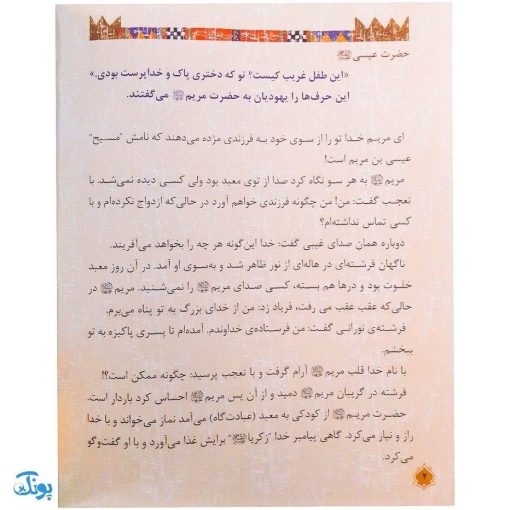 حضرت عیسی ﷺ
«این طفل غریب کیست؟ تو که دختری پاک و خداپرست بودی.»
این حرف‌ها را یهودیان به حضرت مریم می‌گفتند.
ای مریم خدا تو را از سوی خود به فرزندی مژده می‌دهند که نامش "مسیح"
عیسی بن مریم است!
مریم به هر سو نگاه کرد صدا از توی معبد بود ولی کسی دیده نمی‌شد. با
تعجب گفت: من! من چگونه فرزندی خواهم آورد در حالی‌که ازدواج نکرده‌ام و با
کسی تماس نداشته‌ام؟
دوباره همان صدای غیبی گفت: خدا این‌گونه هر چه را بخواهد می‌آفریند.
ناگهان فرشته‌ای در هاله‌ای از نور ظاهر شد و به‌سوی او آمد. در آن روز معبد
خلوت بود و درها هم بسته، کسی صدای مریم را نمی‌شنید. مریم در
حالی‌که عقب عقب می رفت، فریاد زد: من از خدای بزرگ به تو پناه می‌برم.
فرشته‌ی نورانی گفت: من فرستاده‌ی خداوندم. آمده‌ام تا پسری پاکیزه به تو
ببخشم.
با نام خدا قلب مریم آرام گرفت و با تعجب پرسید: چگونه ممکن است؟!
فرشته در گریبان مریم دمید و از آن پس مریم احساس کرد باردار است.
حضرت مریم از کودکی به معبد (عبادت‌گاه) می‌آمد نماز می‌خواند و با خدا
راز و نیاز می‌کرد. گاهی پیامبر خدا "زکریا" برایش غذا می‌آورد و با او گفت‌وگو
می‌کرد.
۲
پونک